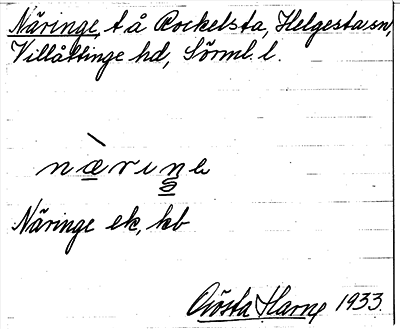 Näringe, t å Rockelsta, Helgesta sn,
Villåttinge hd, Sörml. l.
Näringe ek, kb
Gösta Harne 1933.